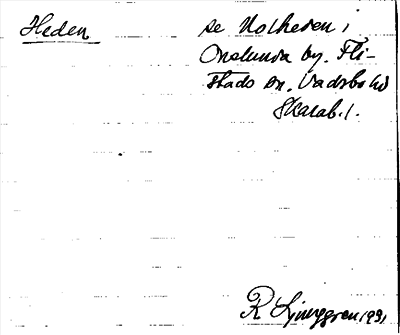 Heden se Nolheden i
Onslunda by. Fli-
stads sn. Vadsbo hd
Skarab. l.
R Ljunggren 1931